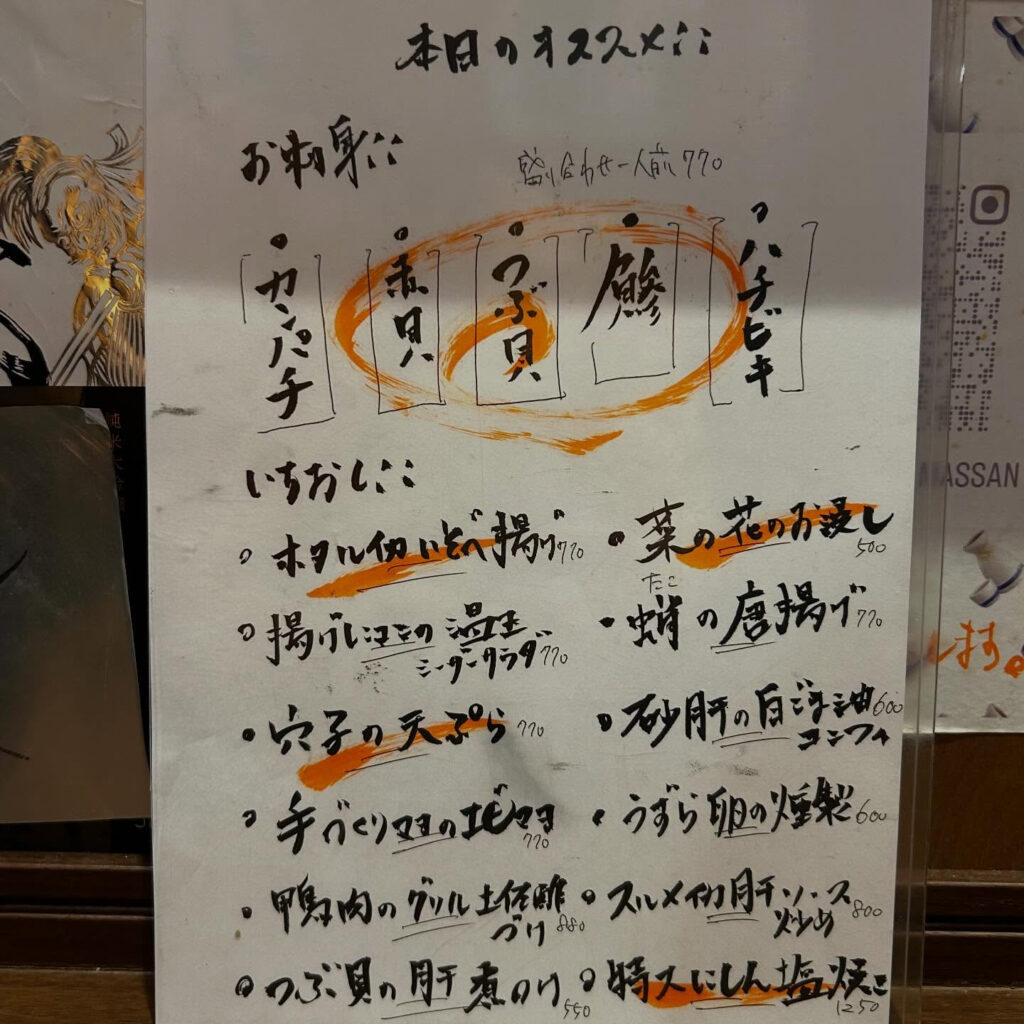 本日のオススメ::
お刺身::
盛り合わせ一人前770
ハチビキ
鰺
つぶ貝
赤貝
カンパチ
いちおし::
ホタルイカいそべ揚げ770
菜の花のお浸し500
揚げじゃこの温玉
シーザーサラダ770
たこ
蛸の唐揚げ770
穴子の天ぷら770
砂肝の白ごま油600
コンフィ
手づくりマヨのエビマヨ770
うずら卵の燻製600
鴨肉のグリル土佐酢
づけ880
スルメイカ肝ソース
炒め800
つぶ貝の肝煮のけ550
特大にしん塩焼き1250
MASSAN
します。